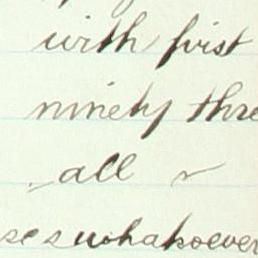 with first
ninety thre
all
ses whatsoever